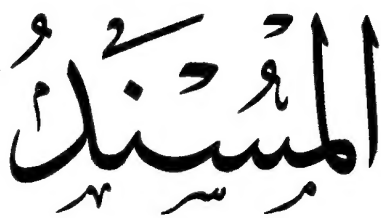 المسند